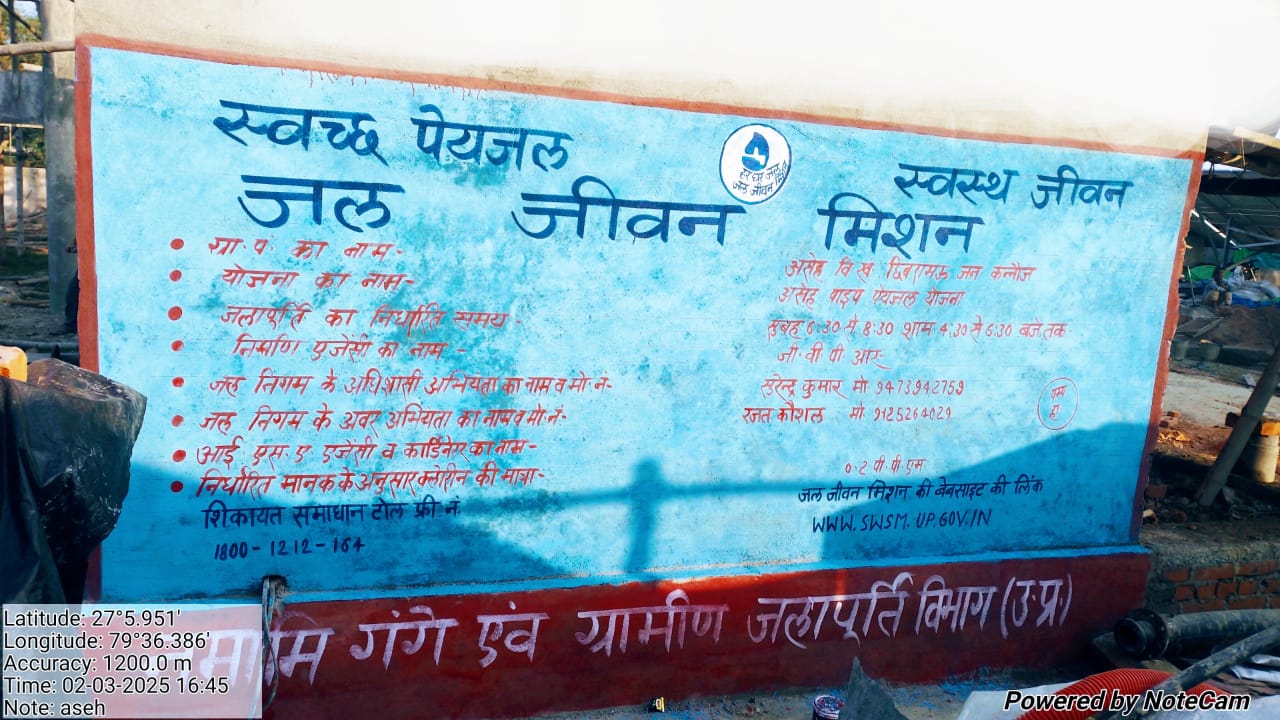 स्वच्छ पेयजल
हर घर जल
जल जीवन मिशन
स्वस्थ जीवन
जल जीवन मिशन
• ग्रा.पं. का नाम- असेह वि.ख. छिबरामऊ जन कन्नौज
• योजना का नाम- असेह पाइप पेयजल योजना
• जलापूर्ति का निर्धारित समय- सुबह 6:30 से 8:30 शाम 4:30 से 6:30 बजे तक
• निर्माण एजेंसी का नाम - जी वी पी आर
• जल निगम के अधिशासी अभियंता का नाम व मो.नं- सुरेन्द्र कुमार मो 9473942759
• जल निगम के अवर अभियंता का नाम व मो.नं- रजत कौशल मो 9125264029
• आई एस ए एजेंसी व कार्डिनेटर का नाम-
• निर्धारित मानक के अनुसार क्लोरिन की मात्रा- 0.2 पी.पी.एम.
शिकायत समाधान टोल फ्री नं.
1800-1212-164
जल जीवन मिशन की बेबसाइट की लिंक
WWW.SWSM.UP.GOV.IN
नमामि गंगे एवं ग्रामीण जलापूर्ति विभाग (उ.प्र.)
Latitude: 27°5.951'
Longitude: 79°36.386'
Accuracy: 1200.0 m
Time: 02-03-2025 16:45
Note: aseh
Powered by NoteCam